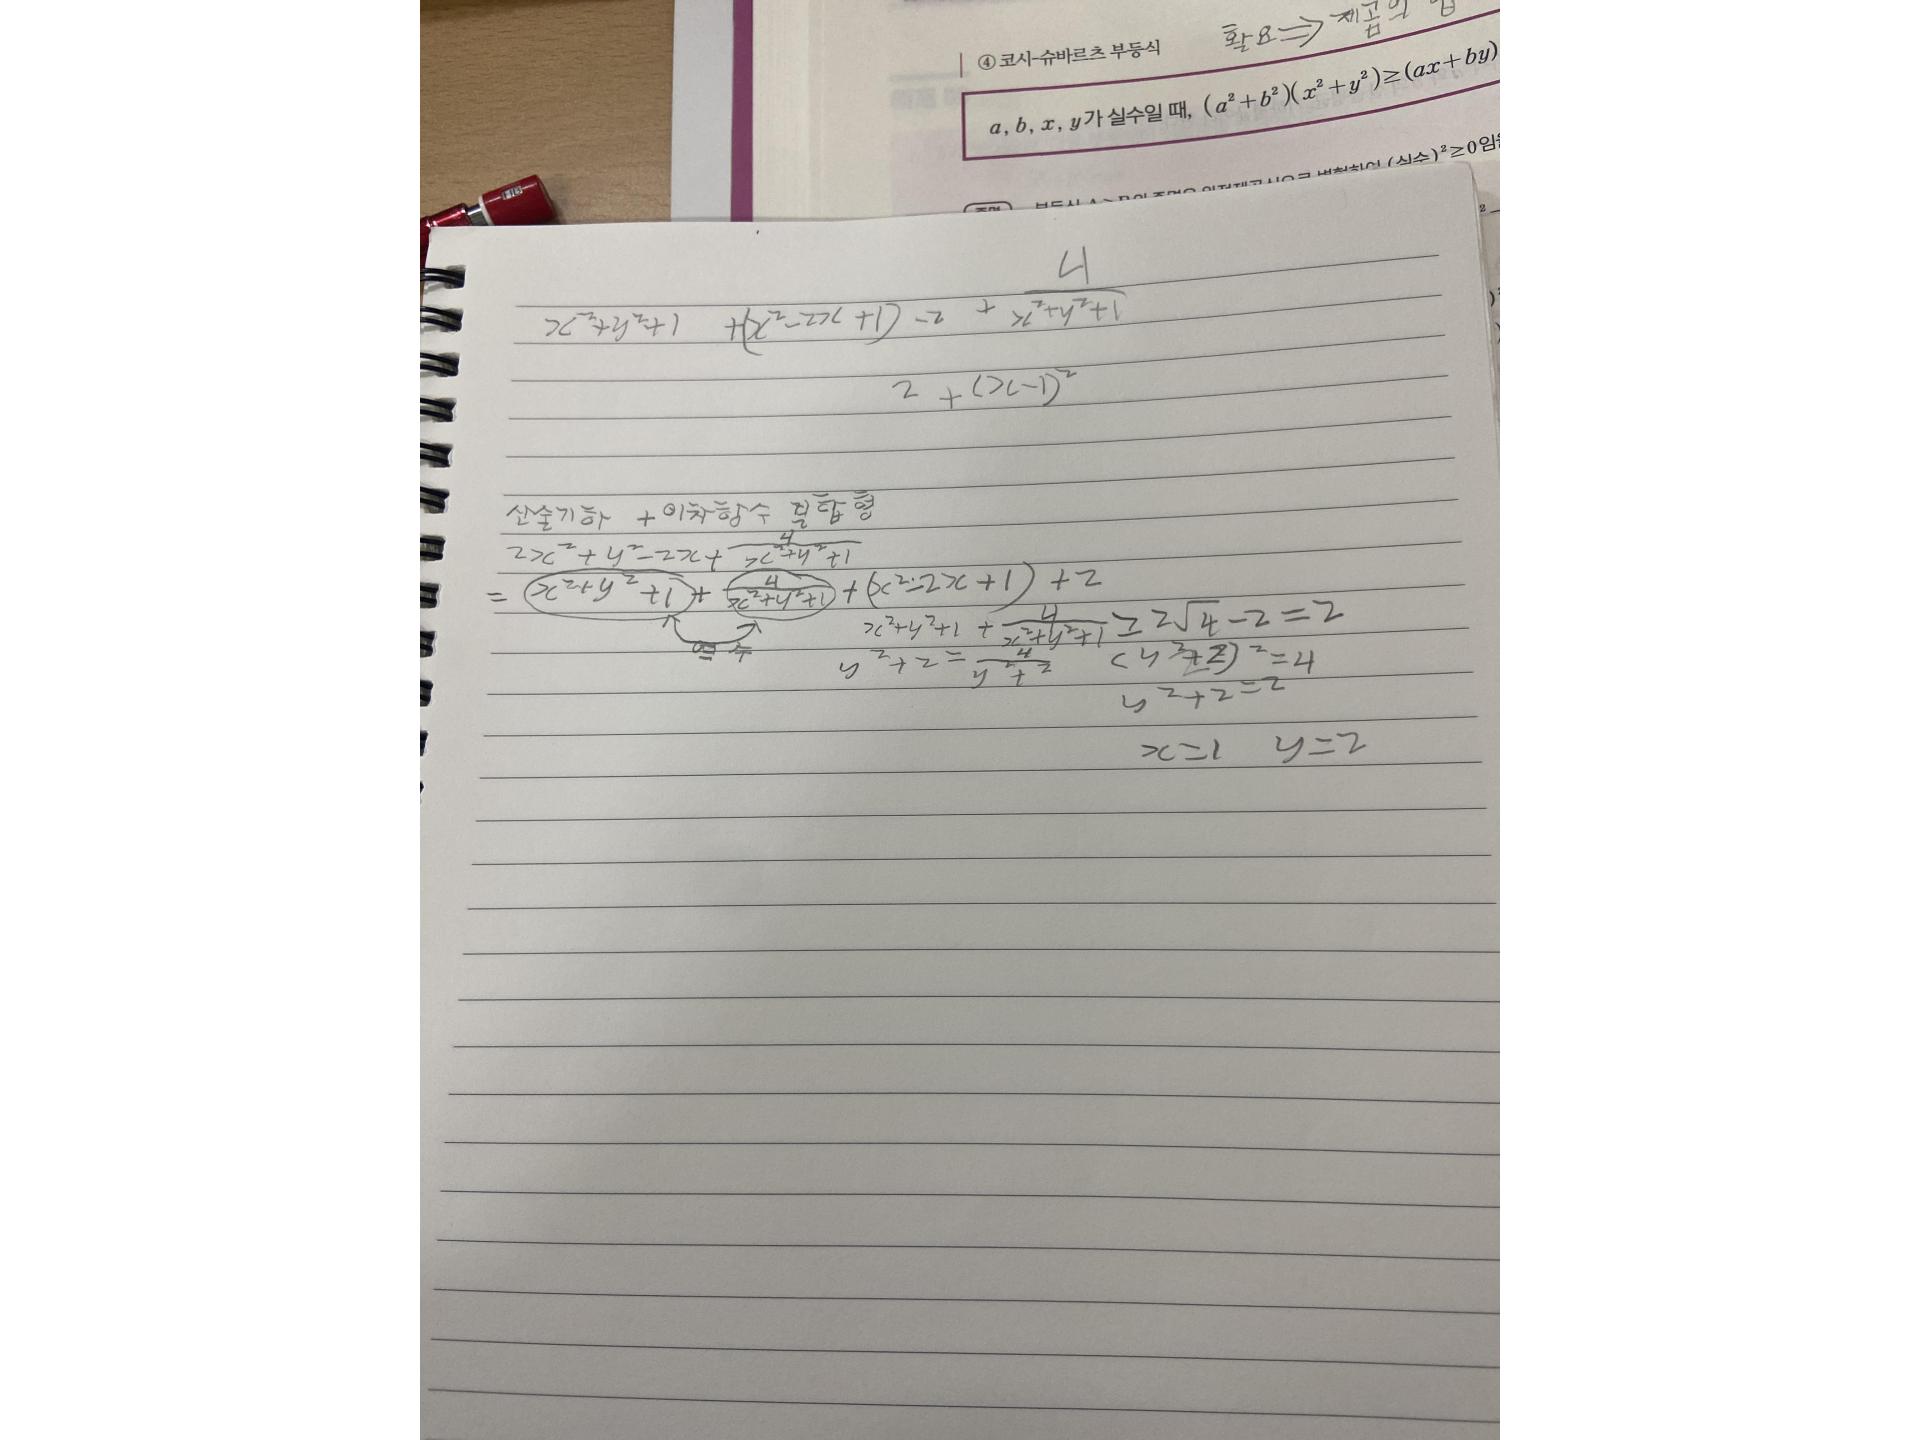 활용⇐제곱의
④ 코시-슈바르츠 부등식
a, b, x, y가 실수일 때, (a²+b²)(x²+y²)≥(ax+by)
(실수)²≥0임을
HB
4
x²+y²+1 +(x²-2x+1) -2 + x²+y²+1
2 +(x-1)²
산술기하 + 이차함수 복합형
2x²+y²-2x+ 4/(x²+y²+1)
= x²+y²+1 + 4/(x²+y²+1) +(x²-2x+1) +2
역수
x²+y²+1 + 4/(x²+y²+1) ≥ 2√4-2=2
y²+2= 4/(y²+2) (y²+2)²=4
y²+2=2
x=1 y=2